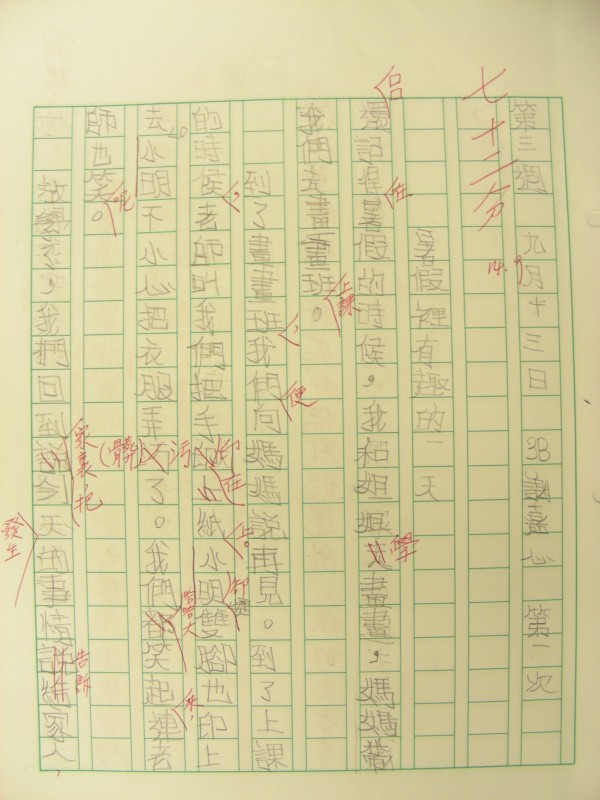 七十二分
14.9
第三週 九月十三日 3B 嘉心 第一次
暑假裡有趣的一天
還記得暑假的時候，我和姐姐畫畫，媽媽帶
在
學
我們去畫畫班。
上課
到了畫畫班我們向媽媽說再見。到了上課
便
的時侯老師叫我們把手紙小明雙腳也印上
印在
上。
去小明不小心把衣服弄了。我們笑起連老
(髒)污
哈哈大
來，
師也笑。
呢
放學，我們回到說今天的事情家人，
家裏，把
發生
告訴